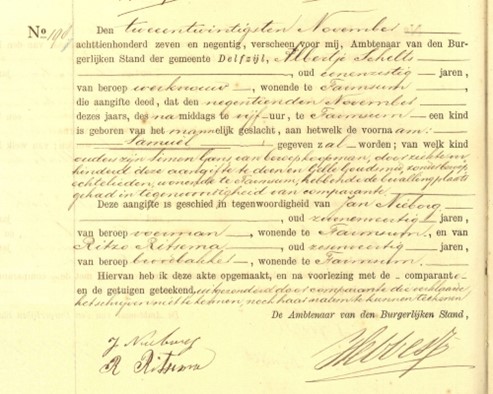 No 196
Den tweeentwintigsten November
achttienhonderd zeven en negentig, verscheen voor mij, Ambtenaar van den Bur-
gerlijken Stand der gemeente Delfzijl, Albertje Schelts
, oud eenenzestig jaren,
van beroep werkvrouw, wonende te Farmsum
die aangifte deed, dat den negentienden November
dezes jaars, des namiddags te vijf uur, te Farmsum een kind
is geboren van het mannelijk geslacht, aan hetwelk de voornaam:
Samuel gegeven zal worden; van welk kind
ouders zijn Simon Gans van beroep koopman, door ziekte ver-
hinderd deze aangifte te doen en Golda zonder beroep,
echtelieden, wonende te Farmsum, hebbende de bevalling plaats
gehad in tegenwoordigheid van comparante
Deze aangifte is geschied in tegenwoordigheid van Jan Nieborg
, oud zevenenveertig jaren,
van beroep voerman, wonende te Farmsum, en van
Ritzo Ritsema, oud zesenveertig jaren,
van beroep, wonende te Farmsum.
Hiervan heb ik deze akte opgemaakt, en na voorlezing met de comparante
en de getuigen geteekend, uitgezonderd door comparante die verklaarde
het schrijven niet te kennen, noch haar naam te kunnen teekenen
De Ambtenaar van den Burgerlijken Stand,
J Nieborg
R Ritsema